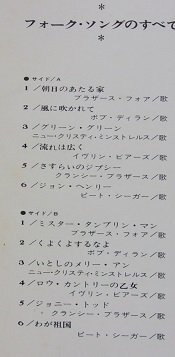 *
フォーク・ソングのすべて
*
● サイド/A
1／朝日のあたる家
ブラザース・フォア／歌
2／風に吹かれて
ボブ・ディラン／歌
3／グリーン・グリーン
ニュー・クリスティ・ミンストレルス／歌
4／流れは広く
イヴリン・ビアーズ／歌
5／さすらいのジプシー
クランシー・ブラザース／歌
6／ジョン・ヘンリー
ピート・シーガー／歌
● サイド/B
1／ミスター・タンブリン・マン
ブラザース・フォア／歌
2／くよくよするなよ
ボブ・ディラン／歌
3／いとしのメリー・アン
ニュー・クリスティ・ミンストレルス／歌
4／ロウ・カントリーの乙女
イヴリン・ビアーズ／歌
5／ジョニー・トッド
クランシー・ブラザース／歌
6／わが祖国
ピート・シーガー／歌